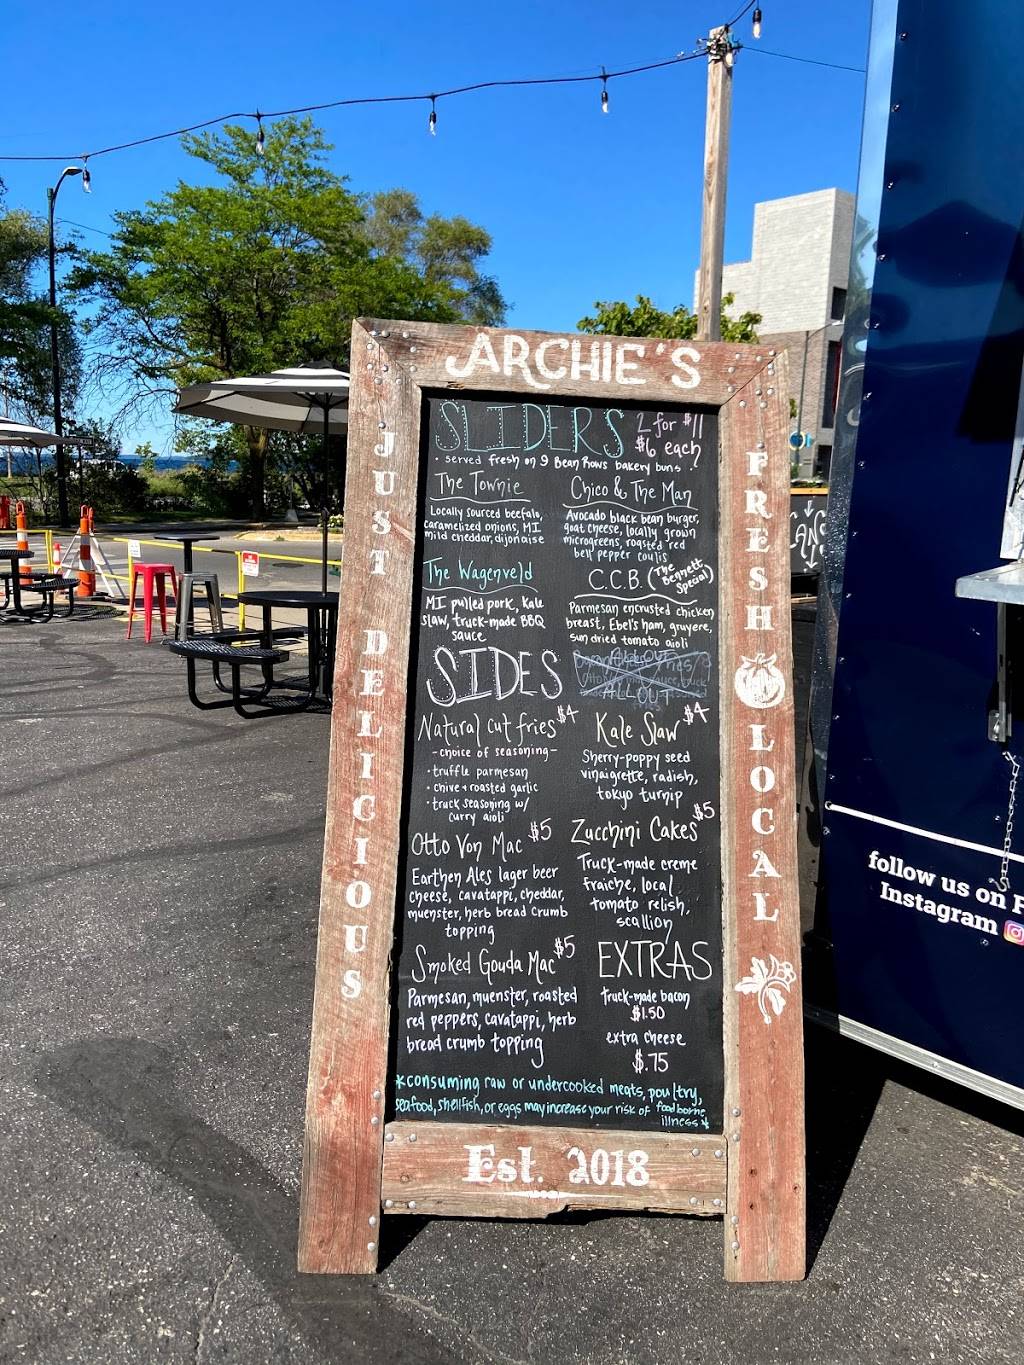 ARCHIE'S
JUST DELICIOUS
FRESH LOCAL
SLIDERS
2 for $11
$6 each
• served fresh on 9 Bean Rows bakery buns •
The Townie
Locally sourced beefalo,
caramelized onions, MI
mild cheddar, dijonaise
Chico & The Man
Avocado black bean burger,
goat cheese, locally grown
microgreens, roasted red
bell pepper coulis
The Wagenveld
MI pulled pork, kale
slaw, truck-made BBQ
sauce
C.C.B. (The Bennett Special)
Parmesan encrusted chicken
breast, Ebel's ham, gruyere,
sun dried tomato aioli
ALL OUT
ALL OUT
SIDES
Natural cut fries $4
-choice of seasoning-
• truffle parmesan
• chive + roasted garlic
• truck seasoning w/
curry aioli
Kale Slaw $4
Sherry-poppy seed
vinaigrette, radish,
tokyo turnip
Otto Von Mac $5
Earthen Ales lager beer
cheese, cavatappi, cheddar,
muenster, herb bread crumb
topping
Zucchini Cakes $5
Truck-made creme
fraiche, local
tomato relish,
scallion
Smoked Gouda Mac $5
Parmesan, muenster, roasted
red peppers, cavatappi, herb
bread crumb topping
EXTRAS
truck-made bacon
$1.50
extra cheese
$.75
*consuming raw or undercooked meats, poultry,
seafood, shellfish, or eggs may increase your risk of foodborne
illness*
Est. 2018
follow us on F
Instagram